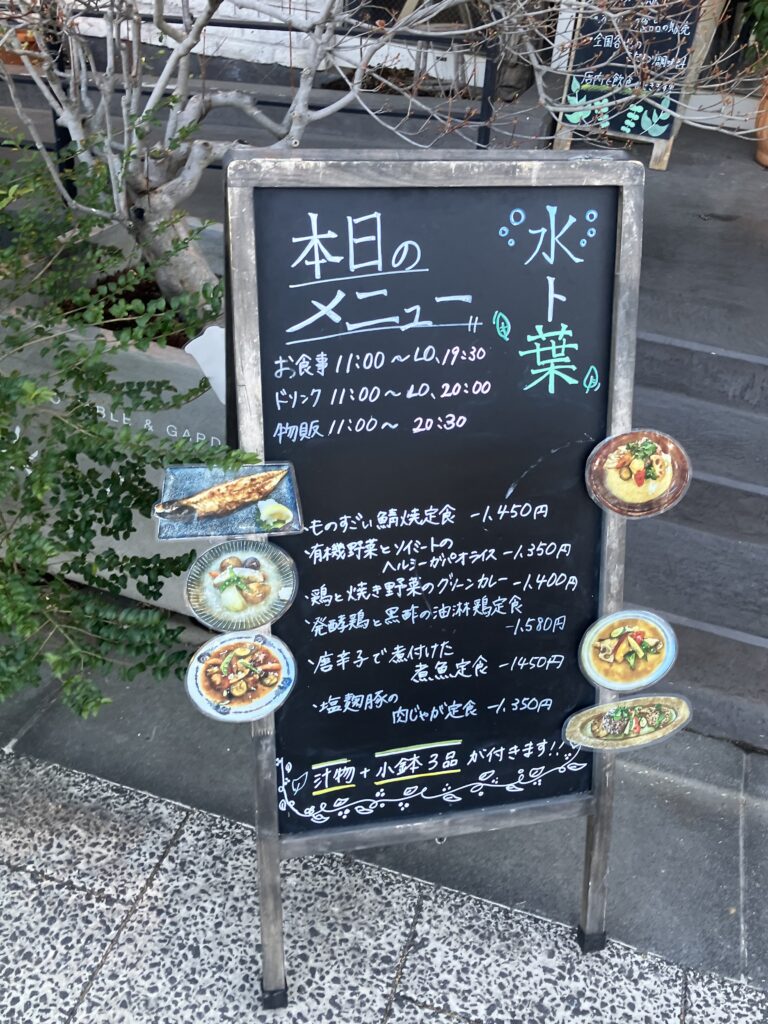 全国各地の
店内で飲食できます!!
本日の
メニュー
水ト葉
お食事 11:00 〜 LO、19:30
ドリンク 11:00 〜 LO、20:00
物販 11:00 〜 20:30
BLE & GARD
・ものすごい鯖焼定食 -1,450円
・有機野菜とソイミートの
ヘルシーガパオライス -1,350円
・鶏と焼き野菜のグリーンカレー -1,400円
・発酵鶏と黒酢の油淋鶏定食
-1,580円
・唐辛子で煮付けた
煮魚定食 -1450円
・塩麹豚の
肉じゃが定食 -1,350円
汁物 + 小鉢3品 が付きます!!